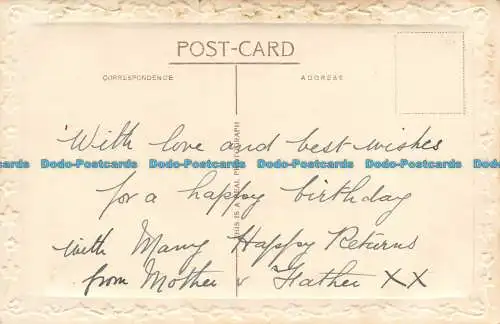 POST-CARD
CORRESPONDENCE
ADDRESS
THIS IS A REAL PHOTOGRAPH
With love and best wishes
Dodo-Postcards Dodo-Postcards Dodo-Postcards Dodo-Postcards Dodo-Postcards
for a happy birthday
with Many Happy Returns
Dodo-Postcards Dodo-Postcards Dodo-Postcards Dodo-Postcards Dodo-Postcards
from Mother & Father XX